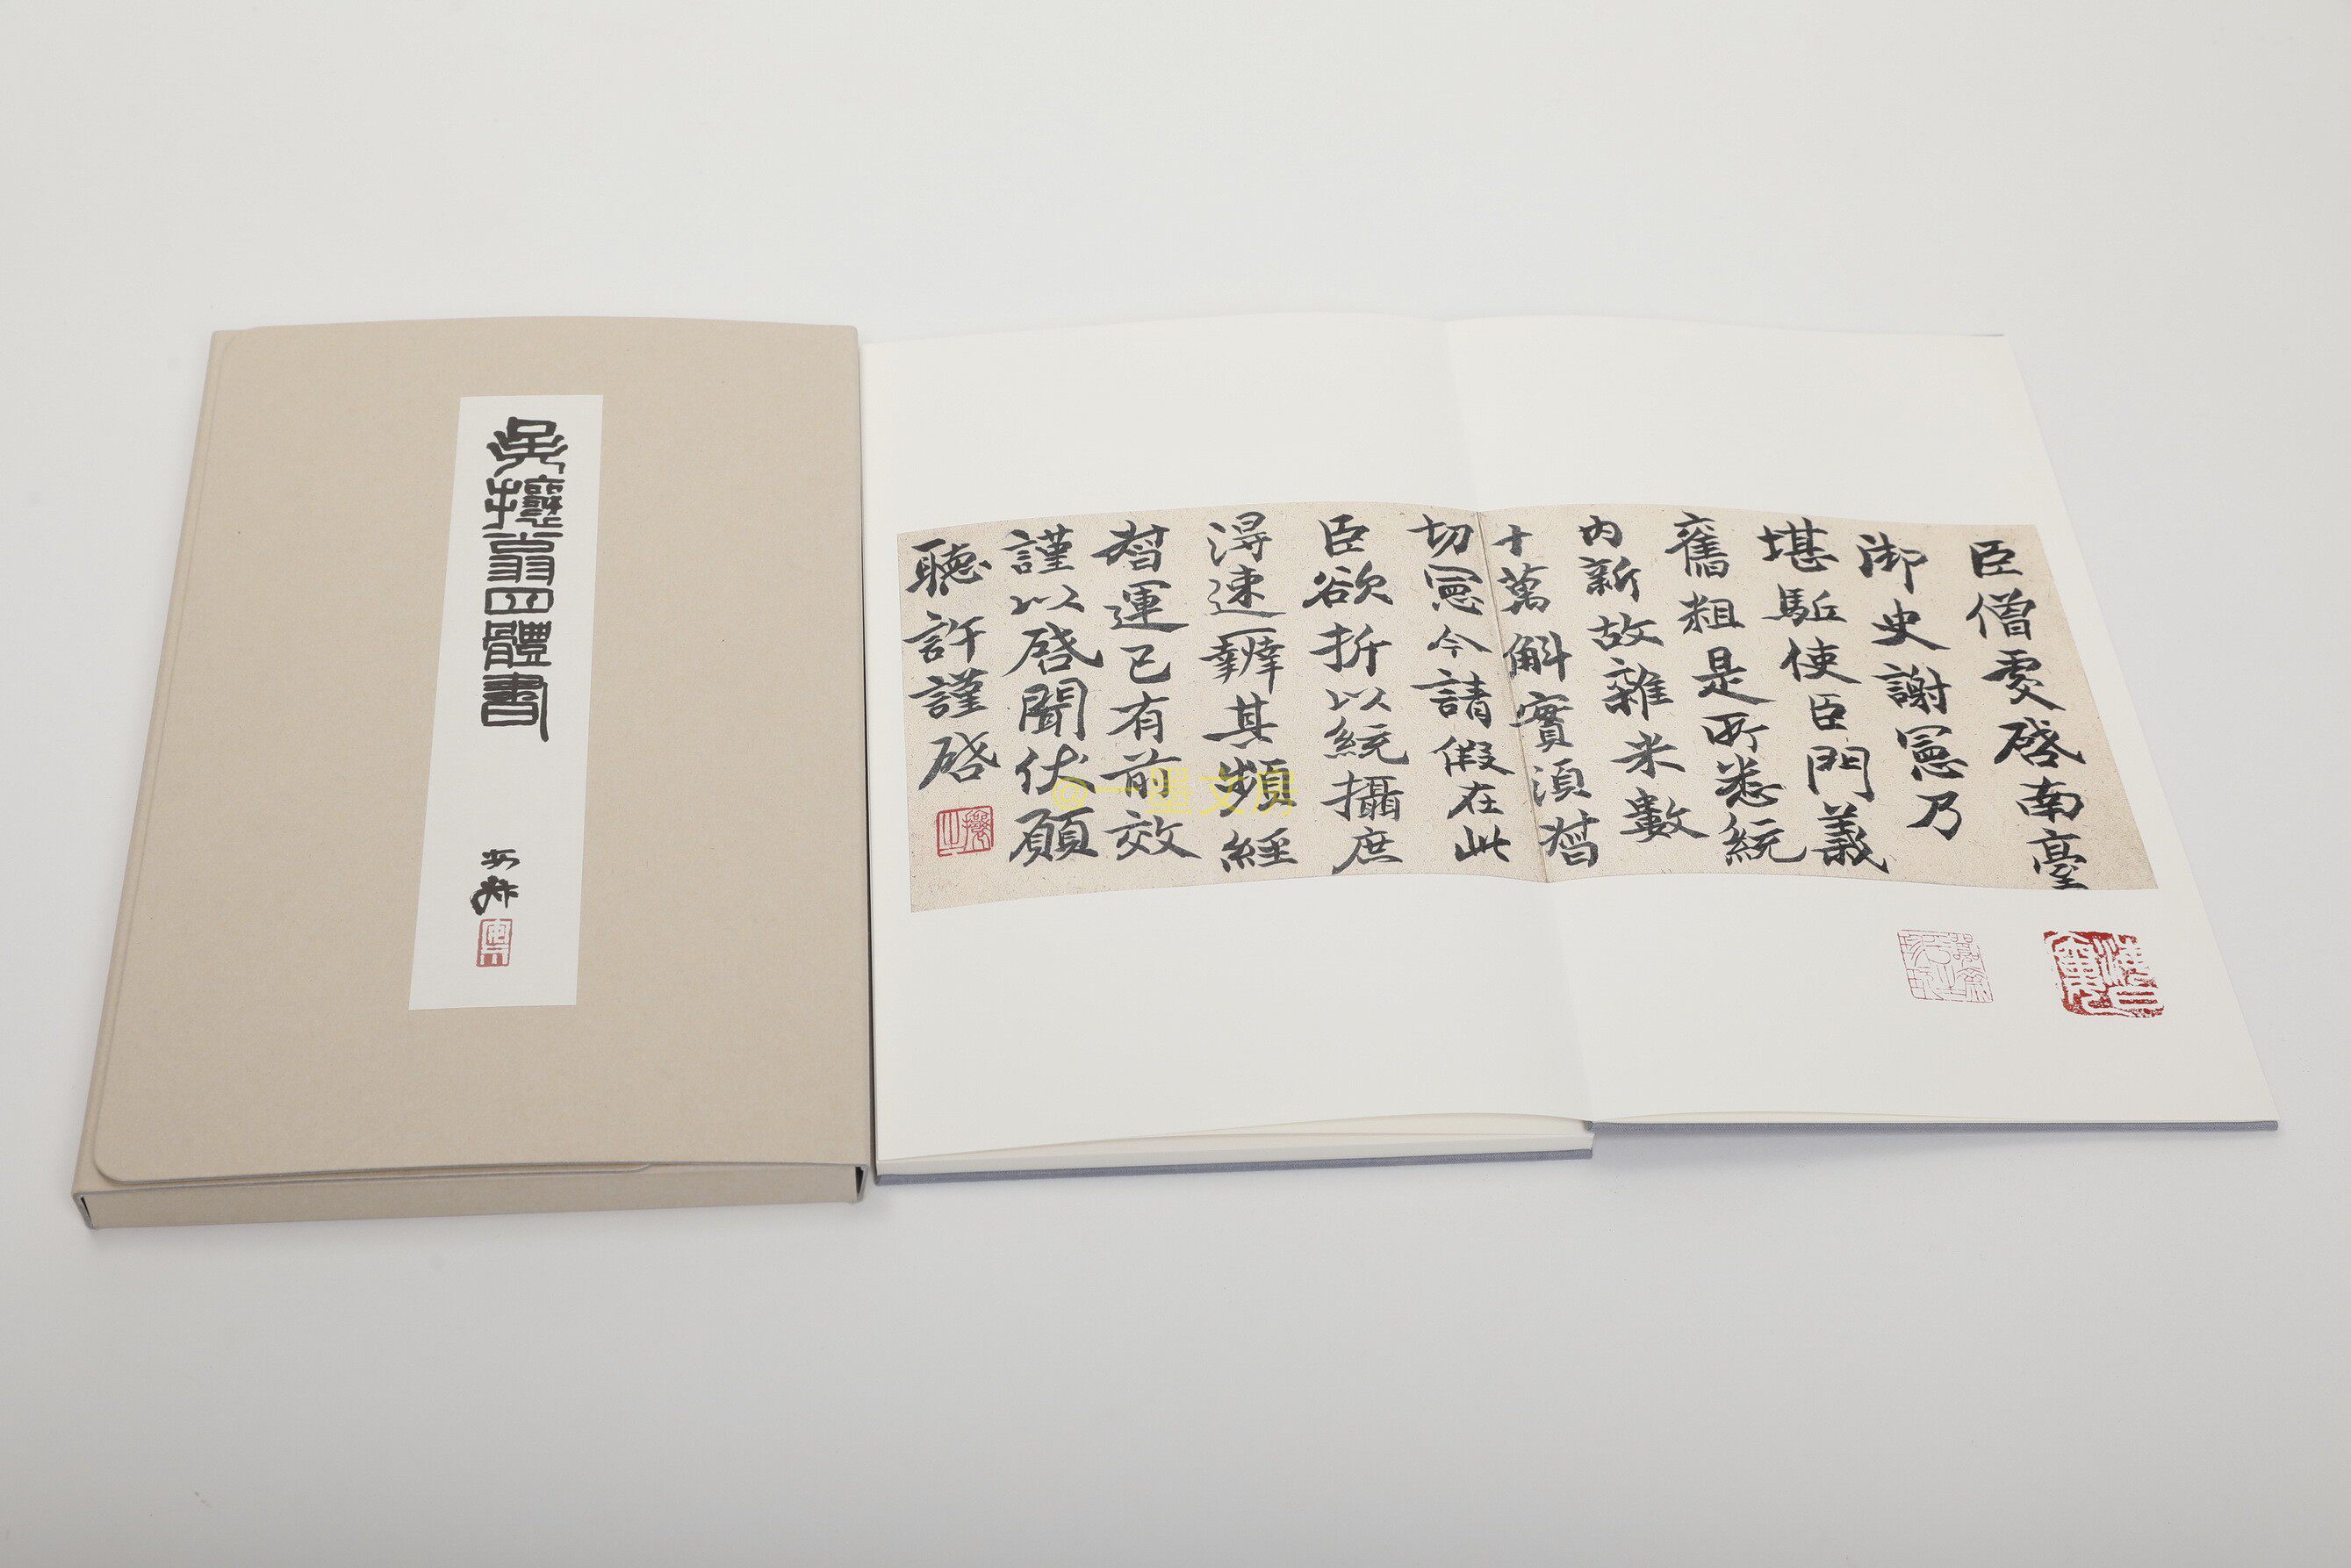 吳攘翁四體書
臣僧虔啓南臺
御史謝憲乃
堪駈使臣門義
舊粗是所悉統
内新故雜米數
十萬斛實須督
切憲今請假在此
臣欲折以統攝庶
得速辦其頻經
督運已有前效
謹以啓聞伏願
聽許謹啓
@一墨文房